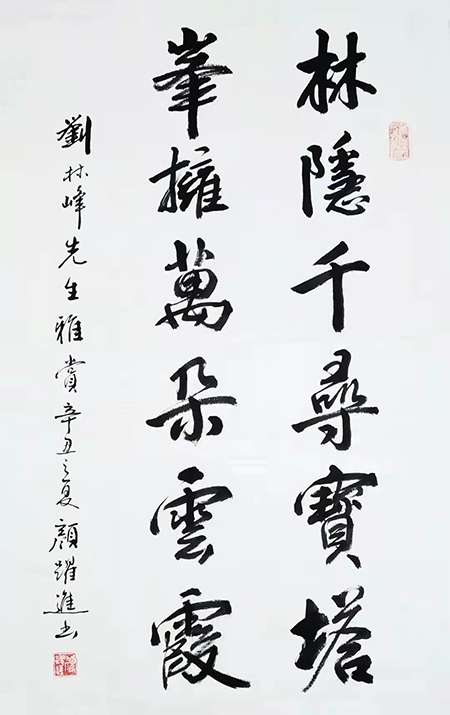 林隱千尋寶塔
峯擁萬朵雲霞
劉林峰先生雅賞辛丑之夏顏躍進書